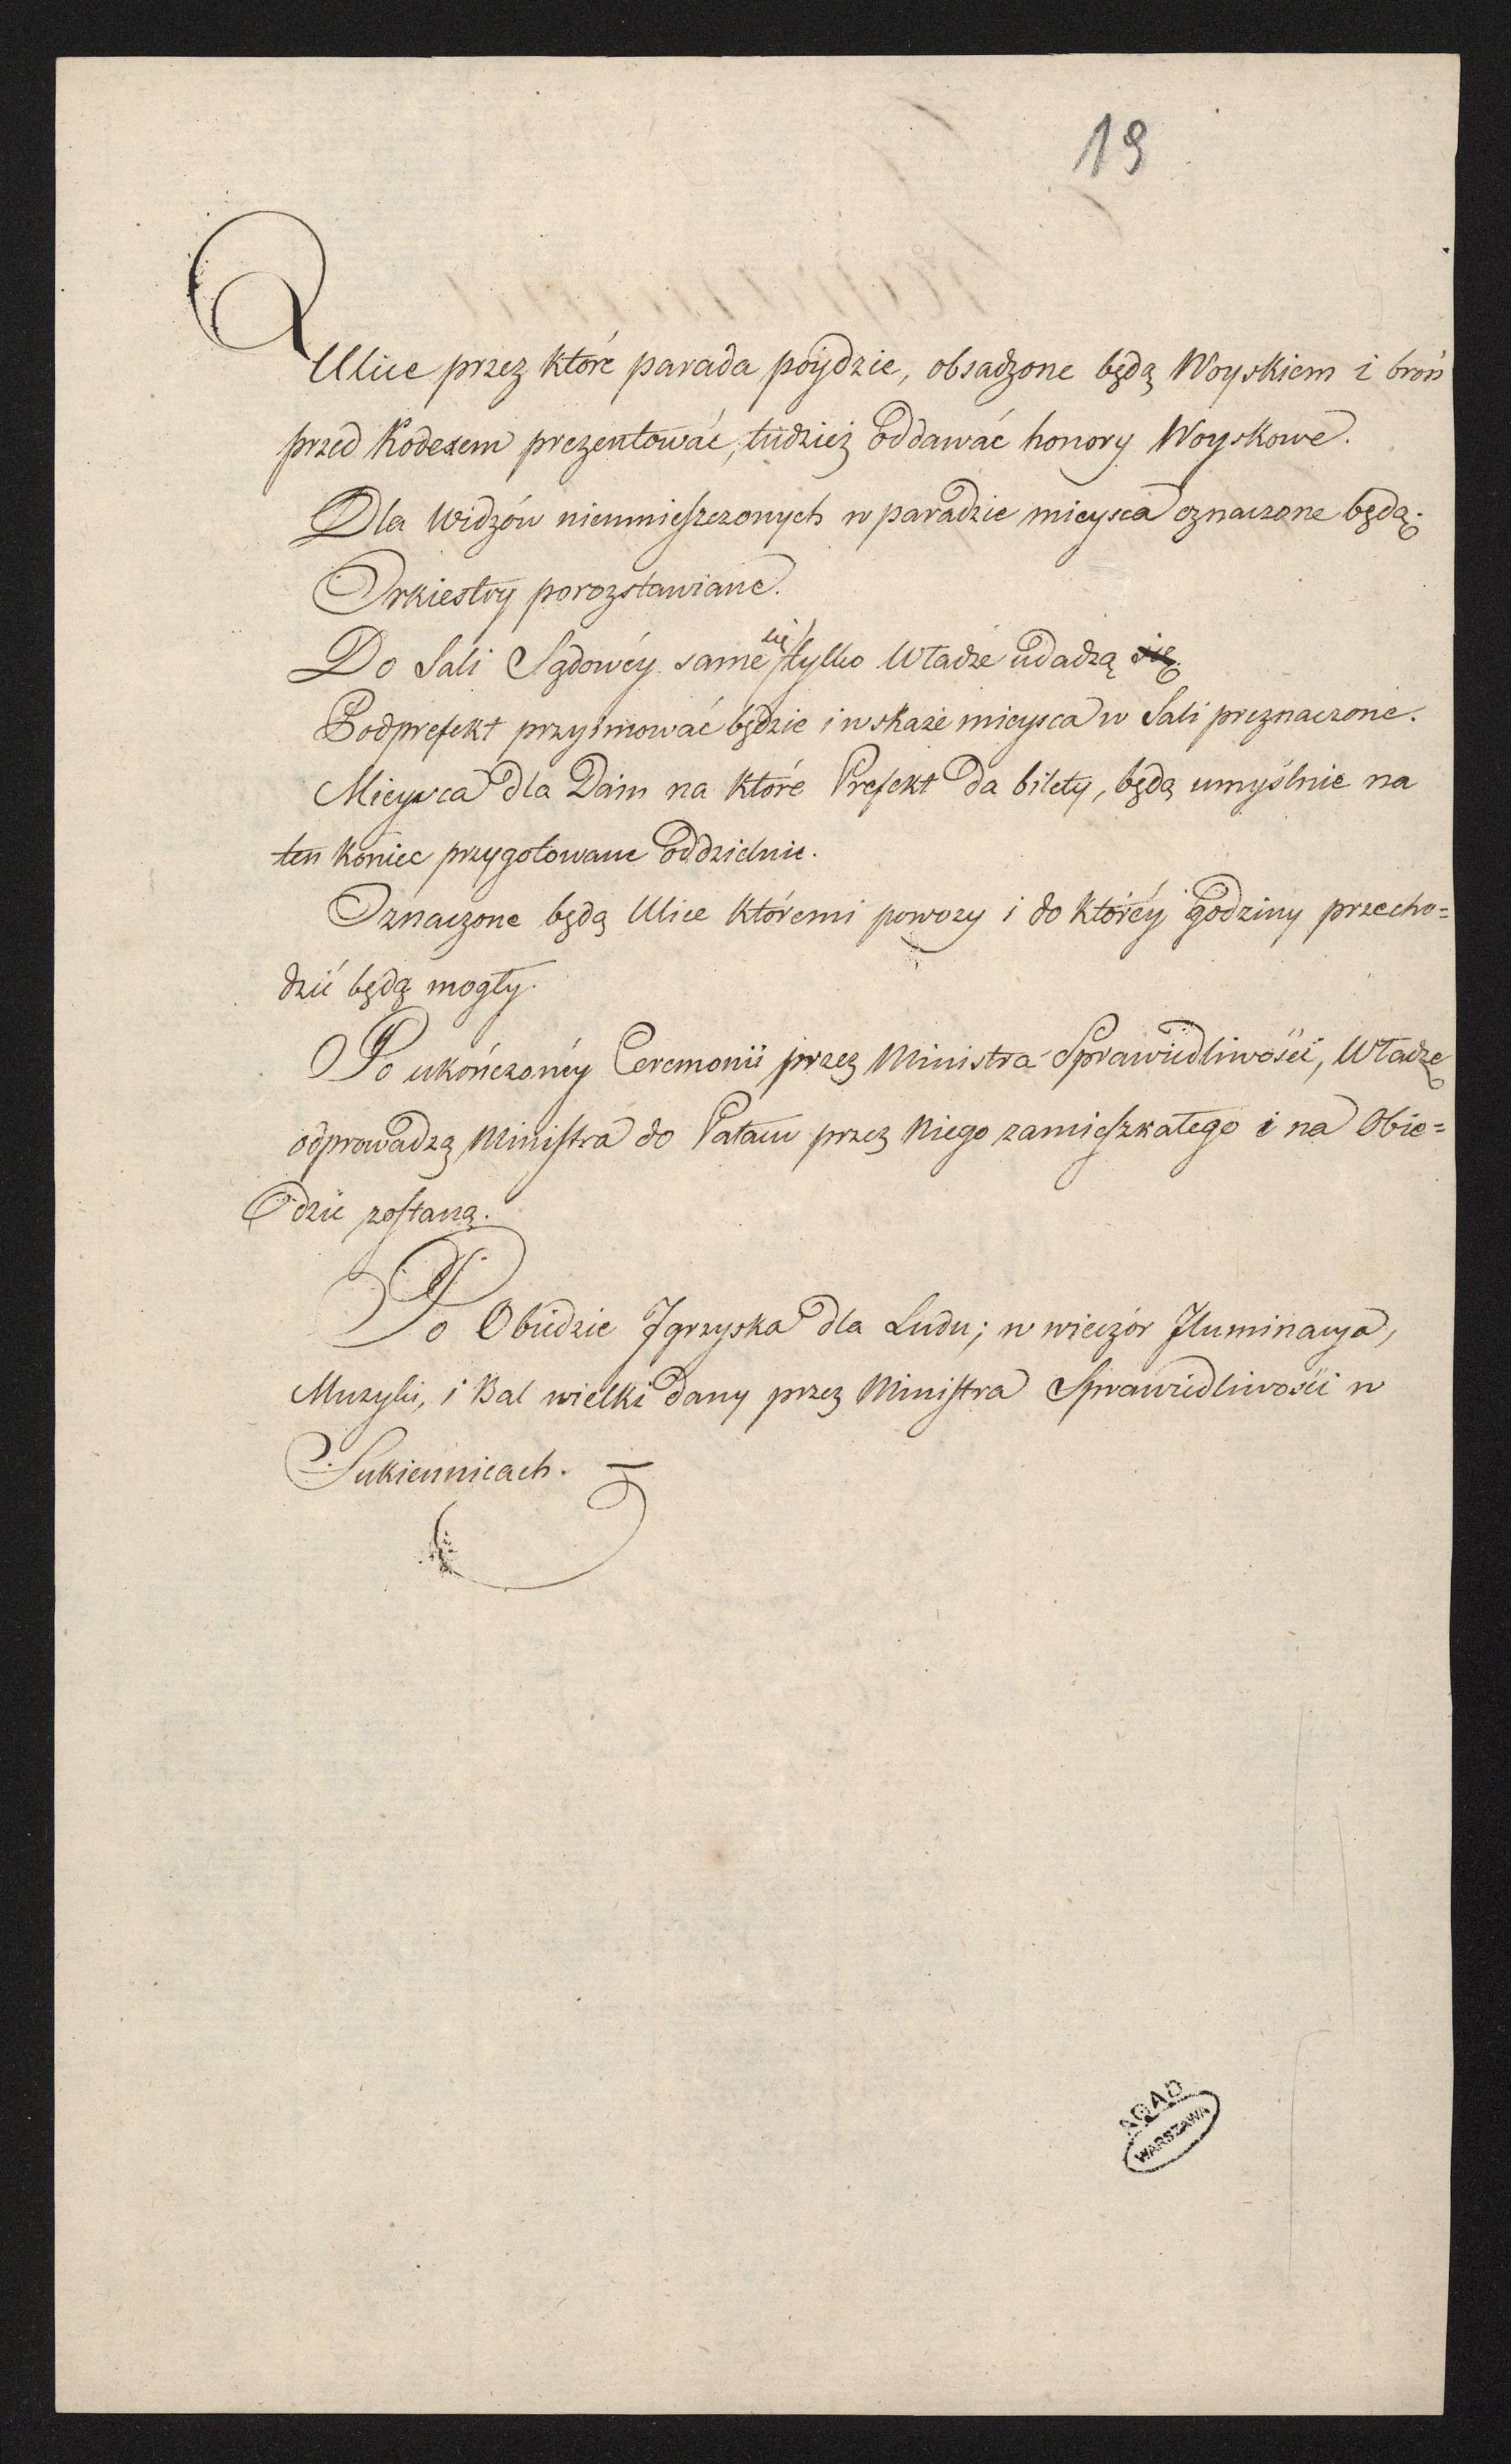 19
Ulice przez które parada póydzie, obsadzone będą Woyskiem i broń
przed Kodexem prezentować, tudzież oddawać honory Woyskowe.
Dla Widzów nieumieszczonych w paradzie mieysca oznaczone będą.
Orkiestry porozstawiane.
Do Sali Sądowéy same się tylko Władze udadzą się.
Podprefekt przyimować będzie i wskaże mieysca w Sali preznaczone.
Mieysca dla Dam na które Prefekt da bilety, będą umyślnie na
ten koniec przygotowane oddzielnie.
Oznaczone będą Ulice któremi powozy i do któréy godziny przecho=
dzić będą mogły.
Po ukończonéy Ceremonii przez Ministra Sprawiedliwości, Władze
odprowadzą Ministra do Pałacu przez Niego zamieszkałego i na Obie=
dzie zostaną.
Po Obiedzie Jgrzyska dla Ludu; w wieczór Jluminacya,
Muzyki, i Bal wielki dany przez Ministra Sprawiedliwości w
Sukiennicach.
AGAD
WARSZAWA